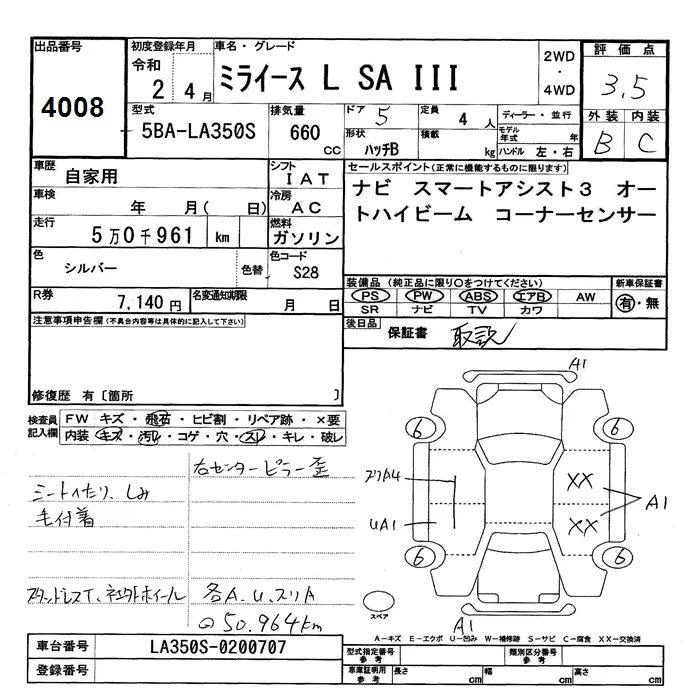 出品番号
4008
初度登録年月
令和
2 4月
車名・グレード
ミライース L SA III
2WD
・
4WD
評価点
3.5
外装 内装
B C
型式
5BA-LA350S
排気量
660
cc
ドア 5
形状
ハッチB
定員
4人
積載
kg
ディーラー・並行
モデル年式 年
ハンドル 左・右
車歴
自家用
シフト
IAT
車検
年 月( 日)
冷房
AC
走行
5万0千961 km
燃料
ガソリン
色
シルバー
色替
色コード
S28
R券
7,140円
名変通知期限
月 日
セールスポイント(正常に機能するものに限ります)
ナビ スマートアシスト3 オー
トハイビーム コーナーセンサー
装備品(純正品に限り○をつけてください)
PS PW ABS エアB AW
SR ナビ TV カワ
新車保証書
有・無
後日品
保証書 取説
注意事項申告欄(不具合内容等は具体的に記入して下さい)
修復歴 有〔箇所 〕
検査員
記入欄
FW キズ・飛石・ヒビ割・リペア跡・×要
内装 キズ・汚レ・コゲ・穴・スレ・キレ・破レ
右センターピラー歪
シートヘたり、しみ
毛付着
スタッドレスT、社外ホイール
各A、U、スリA
50,964km
A1
6
6
スリA4
XX
A1
UA1
XX
6
6
スペア
A1
A-キズ E-エクボ U-凹み W-補修跡 S-サビ C-腐食 XX-交換済
車台番号
LA350S-0200707
登録番号
型式指定番号
参考
類別区分番号
参考
車庫証明用
参考
長さ cm
幅 cm
高さ cm